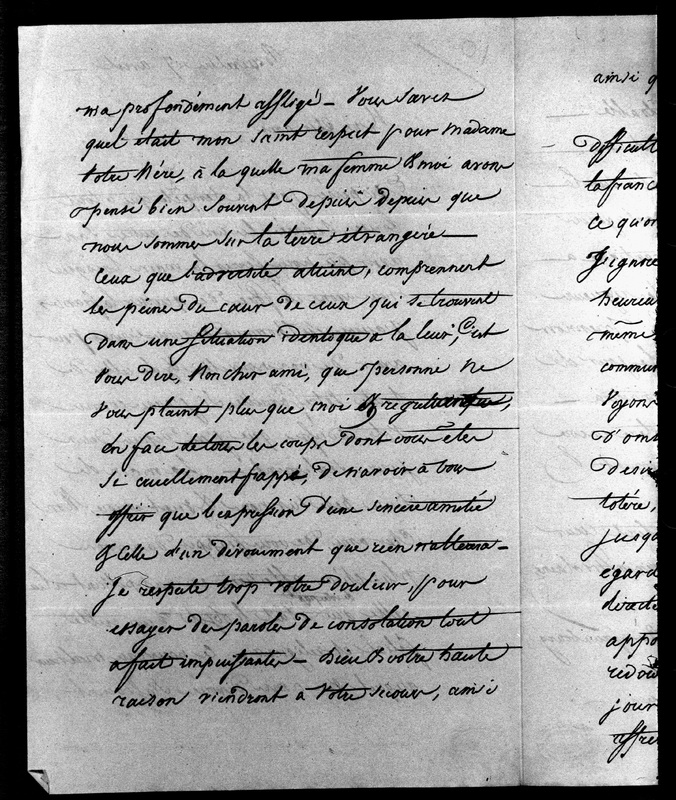 ma profondément affligé – Vous savez
quel était mon saint respect pour Madame
votre Mére, à la quelle ma femme & moi avons
pensé bien souvent depuis depuis que
nous sommes sur la terre étrangère –
Ceux que l'adversité atteint, comprennent
les peines du cœur de ceux qui se trouvent
dans une situation identique a la leur, C'est
vous dire, Mon cher ami, que personne ne
vous plaint plus que moi & regrette
en face de tous les coups dont vous êtes
si cruellement frappé, de n'avoir à vous
offrir que l'expression d'une sincère amitié
& Celle d'un dévouement que rien n'altérera –
Je respecte trop votre douleur, pour
essayer des paroles de consolation tout
a fait impuissantes – Dieu & votre haute
raison viendront a votre secours, ami
ainsi q
– difficult
la franc
ce qu'on
J'ignore
heureu
même
commun
voyons
d'om
desir
tolère,
jusqu
égard
directe
appo
redou
jour
affre